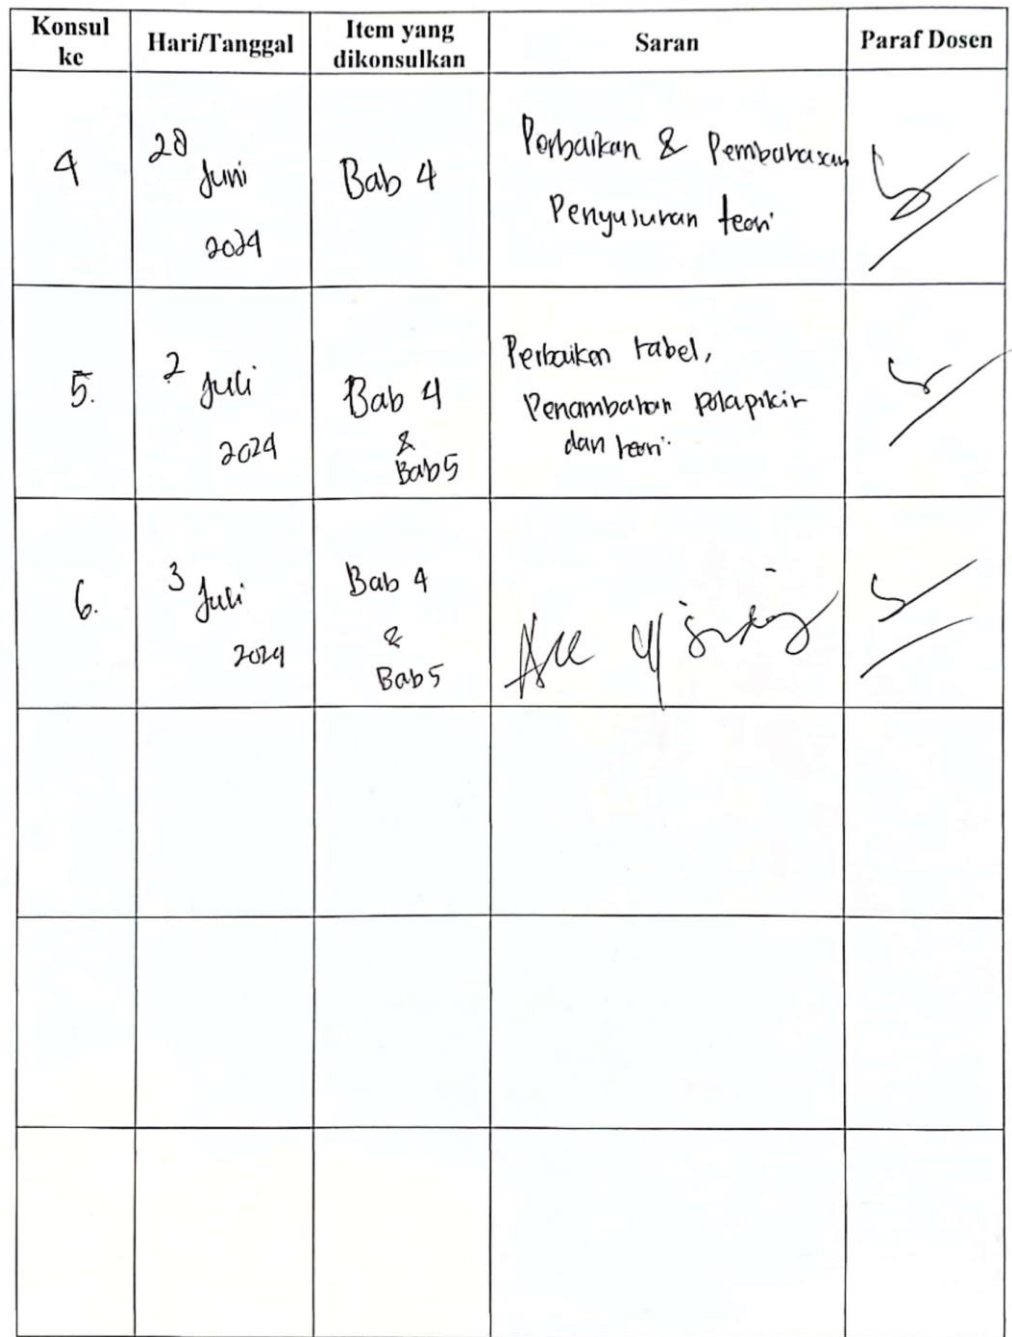 Konsul ke
Hari/Tanggal
Item yang dikonsulkan
Saran
Paraf Dosen
4
28
Juni
2024
Bab 4
Perbaikan & Pembahasan
Penyusunan teori
5.
2
Juli
2024
Bab 4
&
Bab 5
Perbaikan tabel,
Penambahan polapikir
dan teori.
6.
3
Juli
2024
Bab 4
&
Bab 5
Acc